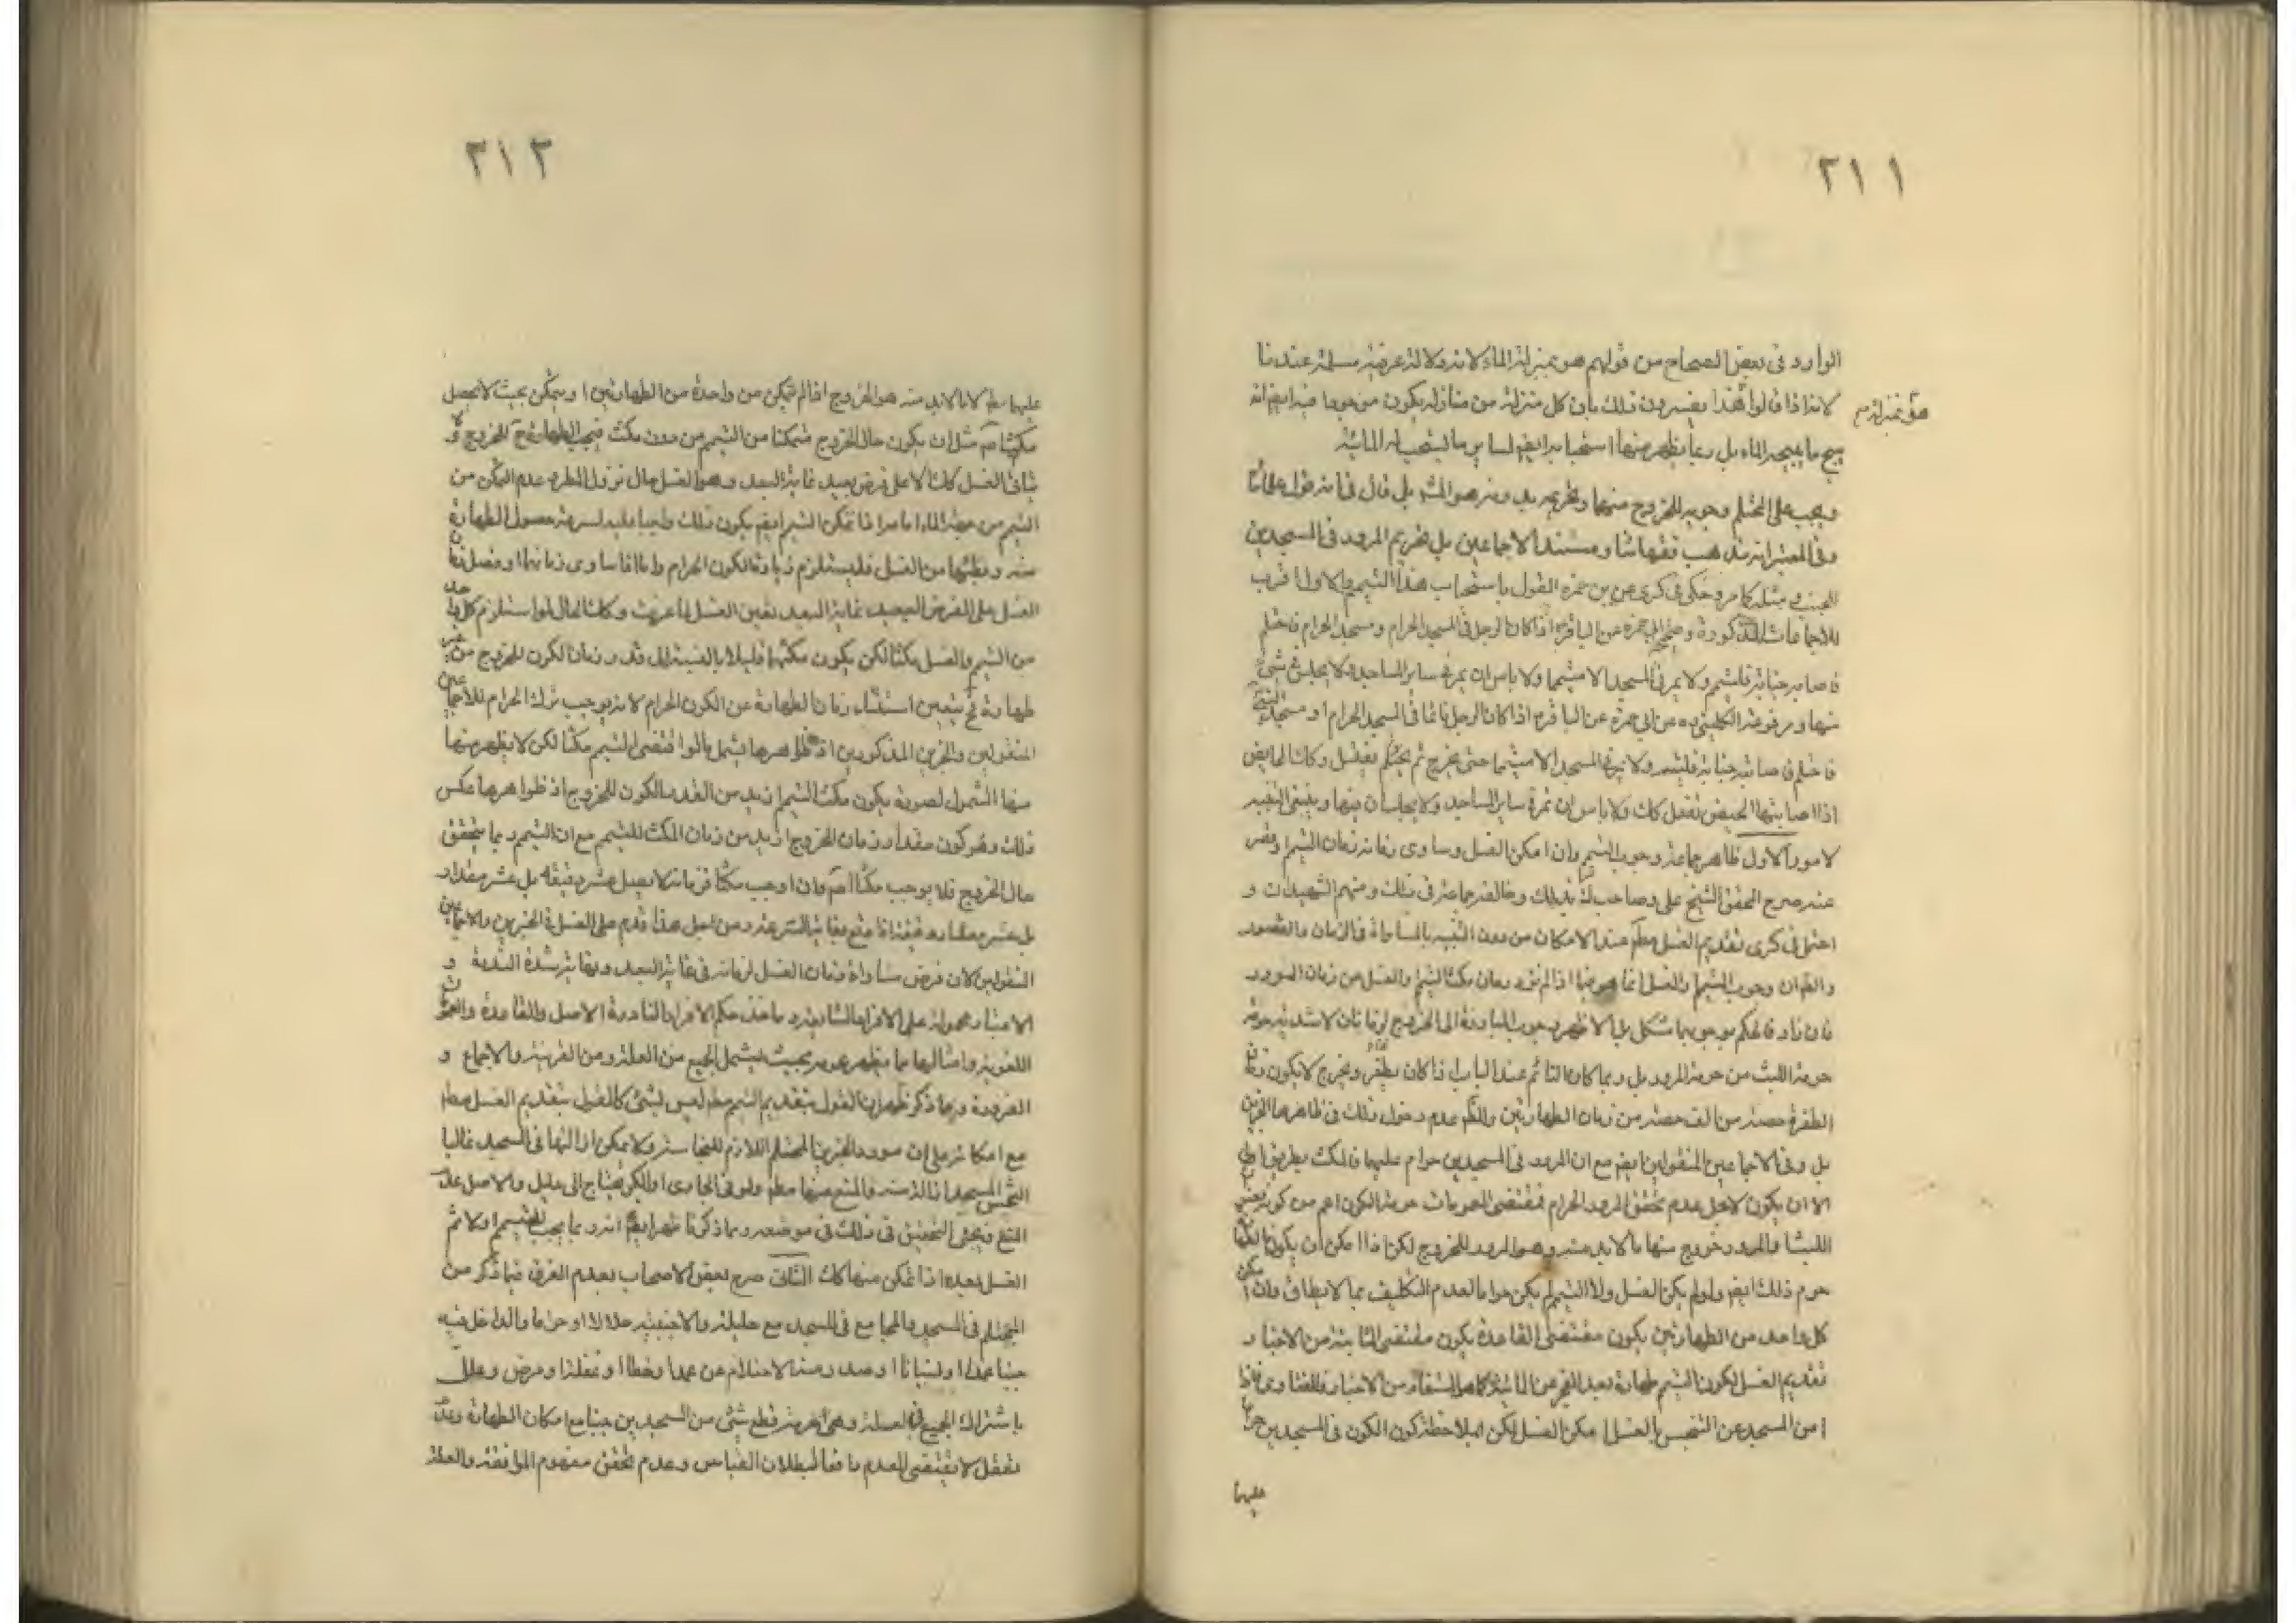 ٢١١
الوارد فى بعض الصحاح من قولهم هو بمنزلة الماء لانه دلالة عرفية مسلمة عندنا
لانا اذا قالوا هذا يفسرون ذلك بان كل منزلة من منازله يكون من فيه ايضا انه
هو بمنزلة
يبيح ما يبيحه الماء بل ربما يظهر منها استحبابه ايضا لساير ما يستحب له المائية
ويجب على المحتلم وجوبه للخروج منهما وتحريمه بدونه هو المشهور بل قال فى
وفى المعتبر انه مذهب فقهائنا ومستند الاجماعين بل تحريم المرور فى المسجدين
للجنب مثله كما مر وحكى فى كرى عن بن حمزه القول باستحباب هذا التيمم والاول اقرب
للاجماعات المذكورة وصحيح ابى حمزه عن الباقر ع اذا كان الرجل فى المسجد الحرام ومسجد الحرام فاحتلم
فاصابه جنابة فليتيمم ولا يمر فى المسجد الا متيمما ولا باس ان يمر فى ساير المساجد ولا يجلس فى شئ
منها ومرفوعة الكلينى ره عن ابى حمزه عن الباقر ع اذا كان الرجل نائما فى المسجد الحرام او مسجد
فاحتلم فاصابته جنابة فليتيمم ولا يمر فى المسجد الا متيمما حتى يخرج ثم يغتسل وكك الحايض
اذا اصابتها الحيض تفعل كك ولا باس ان تمر فى ساير المساجد ولا يجلسان فيها وينبغى التنبيه
لامور الاول ظاهر جماعة وجوب التيمم وان امكن الغسل وساوى زمانه زمان التيمم او قصر
عنه صرح المحقق الشيخ على وصاحب بذلك وخالف جماعة فى ذلك ومنهم الشهيدان و
احتمل فى كرى تقديم الغسل مطلقا عند الامكان من دون التقييد بالمساواة فى الزمان والقصور
وجوب التيمم والغسل انما هو اذا لم يزد زمان مكث التيمم والغسل من زمان المرور
فان زاد فالحكم بوجوبهما مشكل بل الاظهر وجوب المبادرة الى الخروج لاشدية حرمة
حرمة اللبث من حرمة المرور بل ربما كان النائم عند الباب اذا كان يطفر ويخرج لا يكون زمان
الطفرة حصة من الف حصة من زمان الطهارتين والحكم عدم دخول ذلك فى ظاهر الخبرين
بل وفى الاجماعين المنقولين ايضا مع ان المرور فى المسجدين حرام عليهما فالمكث بطريق اولى
الا ان يكون لاجل عدم تحقق المرور الحرام فمقتضى العمومات حرمة الكون اعم من كونه بعنوان
اللبث والمرور وخروج منها ما لابد منه وهو المرور للخروج لكن اذا امكن ان يكون
حرم ذلك ايضا ولو لم يكن الغسل ولا التيمم لم يكن حراما لعدم التكليف بما لا يطاق وان امكن
كل واحد من الطهارتين يكون مقتضى القاعدة يكون مقتضى الثابتة من الاخبار
تقديم الغسل لكون التيمم طهارة بعد العجز عن المائية كما هو المستفاد من الاخبار والفتاوى
امن المسجد عن التنجس بالغسل امكن الغسل لكن بملاحظة كون الكون فى المسجدين حراما
عليهما
٢١٢
عليهما مطلقا الا ما لابد منه هو الخروج اذا لم يتمكن من واحدة من الطهارتين او يتمكن بحيث لا يحصل
مكث اصلا مثل ان يكون حال الخروج متمكنا من التيمم من دون مكث فيجب الطهارة ح للخروج ولا
يتاتى الغسل كك الا على فرض بعيد غاية البعد وهو الغسل حال نزول المطر وعدم التمكن من
التيمم من جهة الماء اما مر اذا تمكن التيمم ايضا يكون ذلك واجبا عليه لسرعة حصول الطهارة
منه وبطئها من الغسل فليستلزم زيادة الكون الحرام واما اذا ساوى زمانهما او فضل زمان
الغسل على الفرض البعيد غاية البعد تعين الغسل لما عرفت وكك الحال لو استلزم كل واحد
من التيمم والغسل مكثا لكن يكون مكثهما قليلا بالنسبة الى قدر زمان الكون للخروج من غير
طهارة ح يتعين استثناء زمان الطهارة عن الكون الحرام لانه يوجب ترك الحرام للاجماعين
المنقولين والخبرين المذكورين اذ ظاهرها يشمل ما لو اقتضى التيمم مكثا لكن لا يظهر منها
منها الشمول لصورة يكون مكث التيمم ازيد من القدر الكون للخروج اذ ظواهرها عكس
ذلك وهو كون مقدار زمان الخروج ازيد من زمان المكث للتيمم مع ان التيمم ربما يتحقق
حال الخروج فلا يوجب مكثا اصلا وان اوجب مكثا فزمانه لا يصل عشر دقيقة بل عشر مقدار
بل عشر مقدار دقيقة اذا وقع بغاية السرعة ومن اجل هذا قدم على الغسل فى الخبرين والاجماعين
المنقولين لان فرض مساواة زمان الغسل لزمانه فى غاية البعد ونهاية شدة الندرة و
الاخبار محمولة على الافراد الشايعة وماخذ حكم الافراد النادرة الاصل والقاعدة والعمومات
اللغوية وامثالها مما يظهر عمومه بحيث يشمل الجميع من العلة ومن القرينة والاجماع و
الضرورة ومما ذكر ظهر ان القول بتقديم التيمم مطلقا ليس بشئ كالقول بتقديم الغسل مطلقا
مع امكانه على ان مورد الخبرين المحتلم اللازم للنجاسة ولا يمكن ازالتها فى المسجد غالبا
المسجد والمنع منها مطلقا ولو فى الجارى او الكر يحتاج الى دليل والاصل عدم
المنع ويجئ التحقيق فى ذلك فى موضعه ومما ذكرنا ظهر ايضا انه ربما يجب التيمم اولا ثم
الغسل بعده اذا تمكن منهما كك الثانى صرح بعض الاصحاب بعدم الفرق فيما ذكر من
المحتلم فى المسجد والمجامع فى المسجد مع حليلة والاجنبية حلالا او حراما والداخل فيه
جنبا عمدا او نسيانا او صدر منه الاحتلام عن عمد او خطا او غفلة او مرض وعلل
باشتراك الجميع فى العلة وهى تحريم قطع شئ من المسجدين جنبا مع امكان الطهارة
تعقل لا يقتضى العدم ما فعا لبطلان القياس وعدم تحقق مفهوم الموافقة والعلة